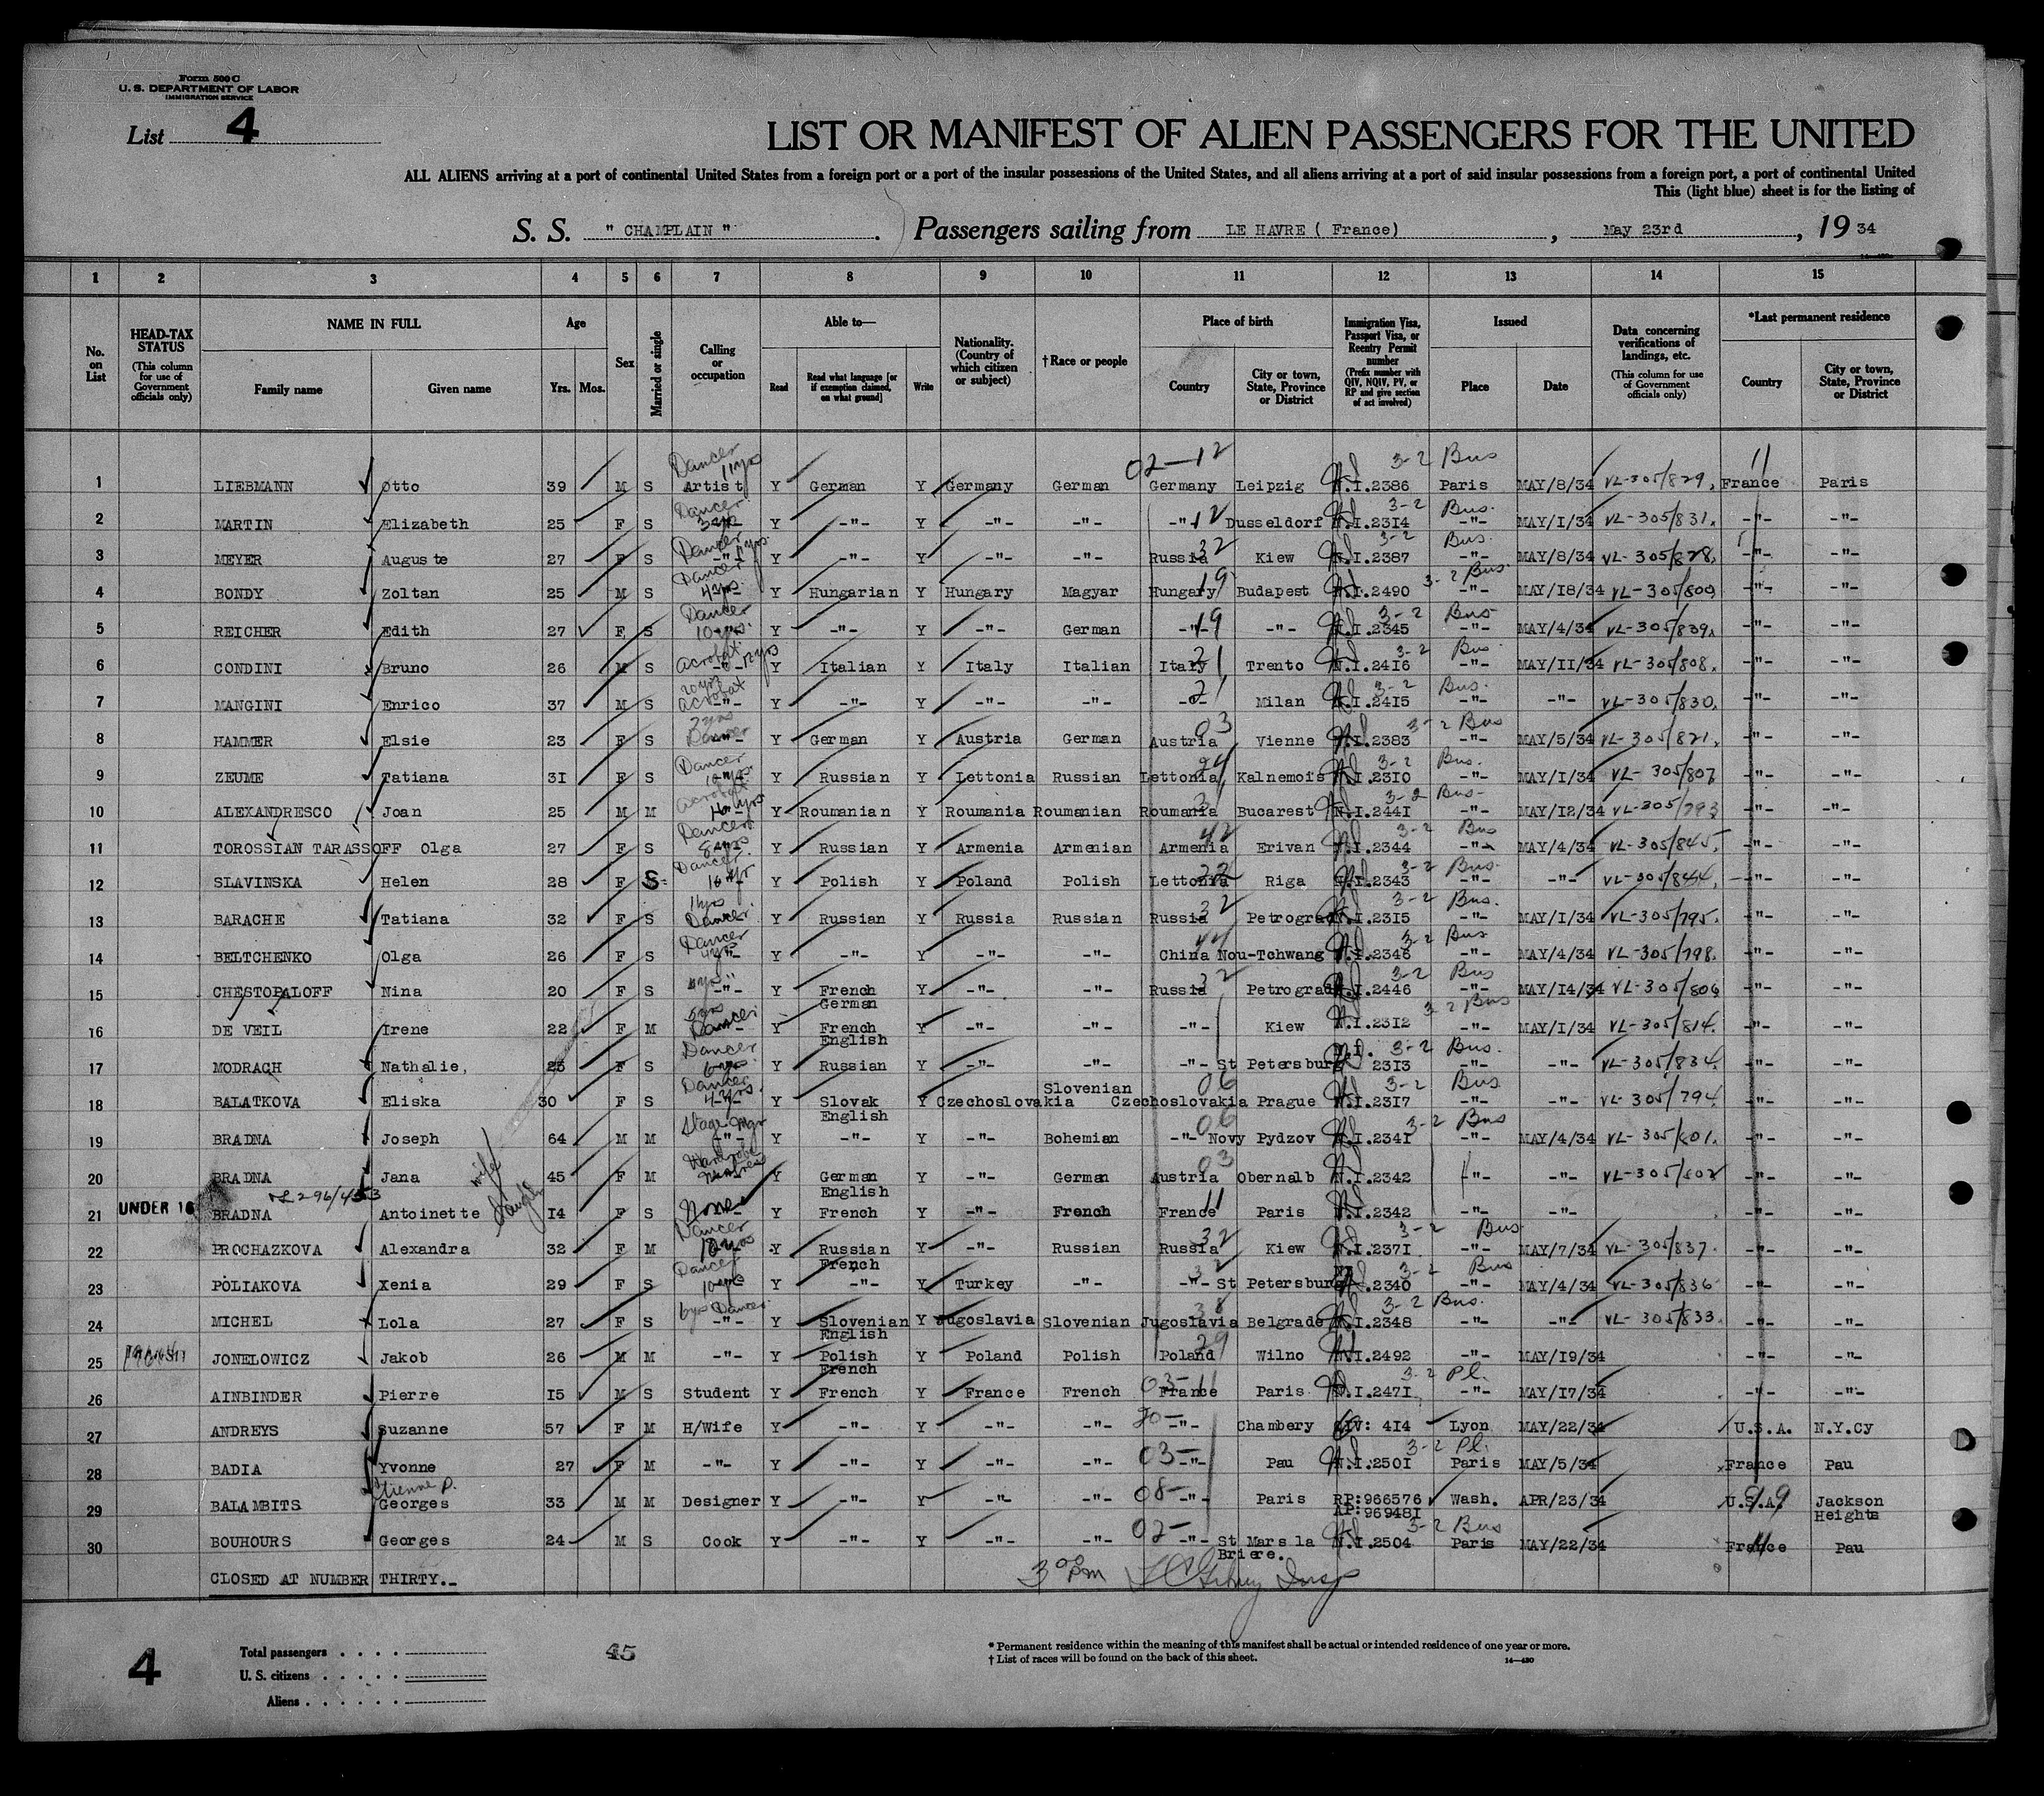 Form 500 C
U. S. DEPARTMENT OF LABOR
IMMIGRATION SERVICE
List 4
LIST OR MANIFEST OF ALIEN PASSENGERS FOR THE UNITED
ALL ALIENS arriving at a port of continental United States from a foreign port or a port of the insular possessions of the United States, and all aliens arriving at a port of said insular possessions from a foreign port, a port of continental United
This (light blue) sheet is for the listing of
S. S. " CHAMPLAIN " . Passengers sailing from LE HAVRE ( France) , May 23rd , 19 34
1 2 3 4 5 6 7 8 9 10 11 12 13 14 15
No. on List
HEAD-TAX STATUS (This column for use of Government officials only)
NAME IN FULL
Family name Given name
Age
Yrs. Mos.
Sex
Married or single
Calling or occupation
Able to—
Read Read what language [or if exemption claimed, on what ground] Write
Nationality. (Country of which citizen or subject)
† Race or people
Place of birth
Country City or town, State, Province or District
Immigration Visa, Passport Visa, or Reentry Permit number (Prefix number with QIV, NQIV, PV, or RP and give section of act involved)
Issued
Place Date
Data concerning verifications of landings, etc. (This column for use of Government officials only)
*Last permanent residence
Country City or town, State, Province or District
02-12
1 LIEBMANN Otto 39 M S Artist Dancer 11 yrs Y German Y Germany German Germany Leipzig N.I.2386 3-2 Bus Paris MAY/8/34 VL-305/829. France 11 Paris
2 MARTIN Elizabeth 25 F S Dancer Y -"- Y -"- -"- -"- 12 Dusseldorf N.I.2314 3-2 Bus. -"- MAY/1/34 VL-305/831. -"- -"-
3 MEYER Auguste 27 F S Dancer -"- Y -"- Y -"- -"- Russia 32 Kiew N.I.2387 3-2 Bus. -"- MAY/8/34 VL-305/828. -"- -"-
4 BONDY Zoltan 25 M S Dancer 4 yrs Y Hungarian Y Hungary Magyar Hungary 19 Budapest N.I.2490 3-2 Bus. -"- MAY/18/34 VL-305/800 -"- -"-
5 REICHER Edith 27 F S Dancer 10 yrs. Y -"- Y -"- German -"- 19 -"- N.I.2345 3-2 Bus -"- MAY/4/34 VL-305/839. -"- -"-
6 CONDINI Bruno 26 M S Acrobat 12 yrs Y Italian Y Italy Italian Italy 21 Trento N.I.2416 3-2 Bus. -"- MAY/11/34 VL-305/808. -"- -"-
7 MANGINI Enrico 37 M S 20 yrs Acrobat -"- Y -"- Y -"- -"- 21 Milan N.I.2415 3-2 Bus. -"- -"- VL-305/830. -"- -"-
8 HAMMER Elsie 23 F S 7 yrs Dancer Y German Y Austria German Austria 03 Vienne N.I.2383 3-2 Bus -"- MAY/5/34 VL-305/821. -"- -"-
9 ZEUME Tatiana 31 F S Dancer 10 yrs. Y Russian Y Lettonia Russian Lettonia 24 Kalnemois N.I.2310 3-2 Bus. -"- MAY/1/34 VL-305/807 -"- -"-
10 ALEXANDRESCO Joan 25 M M Acrobat Y Roumanian Y Roumania Roumanian Roumania 31 Bucarest N.I.2441 3-2 Bus- -"- MAY/12/34 VL-305/793 -"- -"-
11 TOROSSIAN TARASSOFF Olga 27 F S Dancer 8 yrs Y Russian Y Armenia Armenian Armenia 42 Erivan N.I.2344 3-2 Bus -"- MAY/4/34 VL-305/845. -"- -"-
12 SLAVINSKA Helen 28 F S Dancer Y Polish Y Poland Polish Lettonia Riga N.I.2343 3-2 Bus. -"- -"- VL-305/844. -"- -"-
13 BARACHE Tatiana 32 F S 11 yrs Dancer Y Russian Y Russia Russian Russia 32 Petrograd N.I.2315 3-2 Bus. -"- MAY/1/34 VL-305/795. -"- -"-
14 BELTCHENKO Olga 26 F S Dancer Y -"- Y -"- -"- China 44 Nou-Tchwang N.I.2346 3-2 Bus -"- MAY/4/34 VL-305/798. -"- -"-
15 CHESTOPALOFF Nina 20 F S -"- Y French German Y -"- -"- Russia 32 Petrograd N.I.2446 3-2 Bus -"- MAY/14/34 VL-305/806 -"- -"-
16 DE VEIL Irene 22 F M 5 yrs Dancer Y French English Y -"- -"- -"- Kiew N.I.2312 3-2 Bus -"- MAY/1/34 VL-305/814. -"- -"-
17 MODRACH Nathalie, 25 F S Dancer 6 yrs Y Russian Y -"- -"- -"- St Petersburg N.I. 2313 3-2 Bus. -"- -"- VL-305/834. -"- -"-
18 BALATKOVA Eliska 30 F S Dancer 4 yrs. Y Slovak English Y Czechoslovakia Slovenian Czechoslovakia 06 Prague N.I.2317 3-2 Bus -"- -"- VL-305/794. -"- -"-
19 BRADNA Joseph 64 M M Stage Mgr -"- Y -"- Y -"- Bohemian -"- 06 Novy Pydzov N.I.2341 3-2 Bus -"- MAY/4/34 VL-305/801. -"- -"-
20 BRADNA Jana wife 45 F M Wardrobe Mistress Y German English Y -"- German Austria 03 Obernalb N.I.2342 -"- -"- VL-305/802 -"- -"-
21 UNDER 16 BRADNA Antoinette 14 F S None Y French Y -"- French France 11 Paris N.I.2342 -"- -"- -"- -"-
22 PROCHAZKOVA Alexandra 32 F M Dancer Y Russian French Y -"- Russian Russia 32 Kiew N.I.2371 3-2 Bus -"- MAY/7/34 VL-305/837. -"- -"-
23 POLIAKOVA Xenia 29 F S Dancer 10 yrs Y -"- Y Turkey -"- -"- 32 St Petersburg N.I.2340 3-2 Bus -"- MAY/4/34 VL-305/836 -"- -"-
24 MICHEL Lola 27 F S 6 yrs Dancer. -"- Y Slovenian English Y Jugoslavia Slovenian Jugoslavia 38 Belgrade N.I.2348 3-2 Bus. -"- -"- VL-305/833. -"- -"-
25 JONELOWICZ Jakob 26 M M -"- Y Polish French Y Poland Polish Poland 29 Wilno N.I.2492 -"- MAY/19/34 -"- -"-
26 AINBINDER Pierre 15 M S Student Y French Y France French France 03-11 Paris N.I.2471 3-2 Pl. -"- MAY/17/34 -"- -"-
27 ANDREYS Suzanne 57 F M H/Wife Y -"- Y -"- -"- 20- -"- Chambery QIV: 414 Lyon MAY/22/34 U.S.A. N.Y.Cy
28 BADIA Yvonne 27 F M -"- Y -"- Y -"- -"- 03- -"- Pau N.I.2501 3-2 Pl. Paris MAY/5/34 France Pau
29 BALAMBITS Etienne P. Georges 33 M M Designer Y -"- Y -"- -"- 08- -"- Paris RP:966576 AP:969481 Wash. APR/23/34 U.S.A. Jackson Heights
30 BOUHOURS Georges 24 M S Cook Y -"- Y -"- -"- 02- -"- St Mars la Briere. N.I.2504 3-2 Bus Paris MAY/22/34 France 11 Pau
CLOSED AT NUMBER THIRTY._
3 00 pm
4
Total passengers . . . . 45
U. S. citizens . . . . .
Aliens . . . . . .
* Permanent residence within the meaning of this manifest shall be actual or intended residence of one year or more.
† List of races will be found on the back of this sheet. 14—430